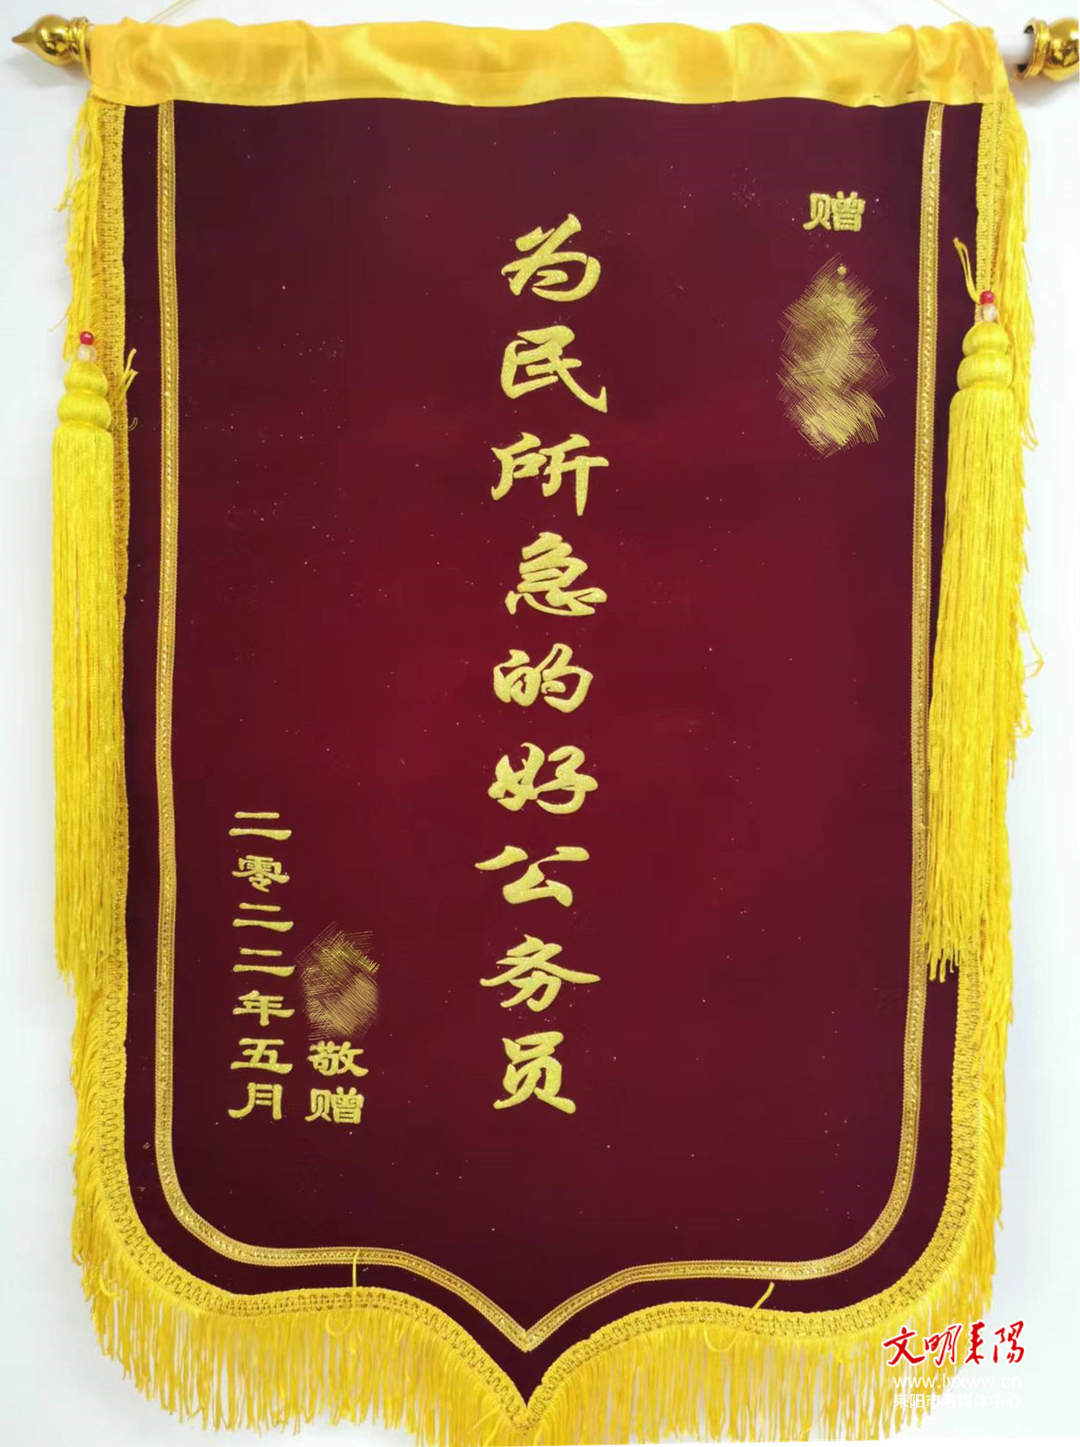 赠
为民所急的好公务员
敬赠
二零二二年五月
文明耒阳
www.lyxww.cn
耒阳市融媒体中心